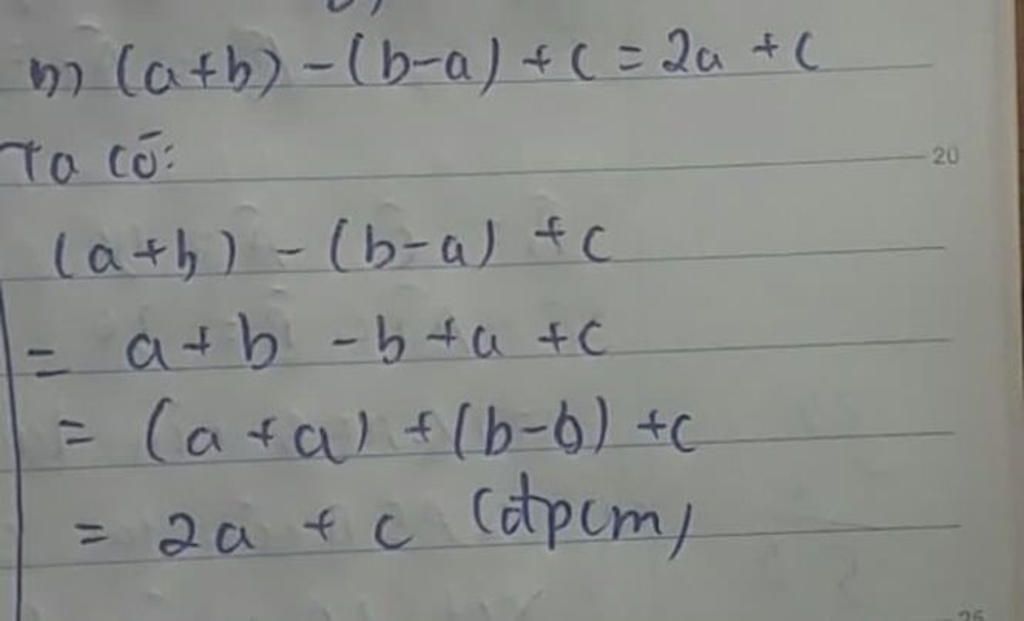 b) (a+b) - (b-a) + c = 2a + c
Ta có:
20
(a+b) - (b-a) + c
= a + b - b + a + c
= (a + a) + (b-b) + c
= 2a + c (đpcm)